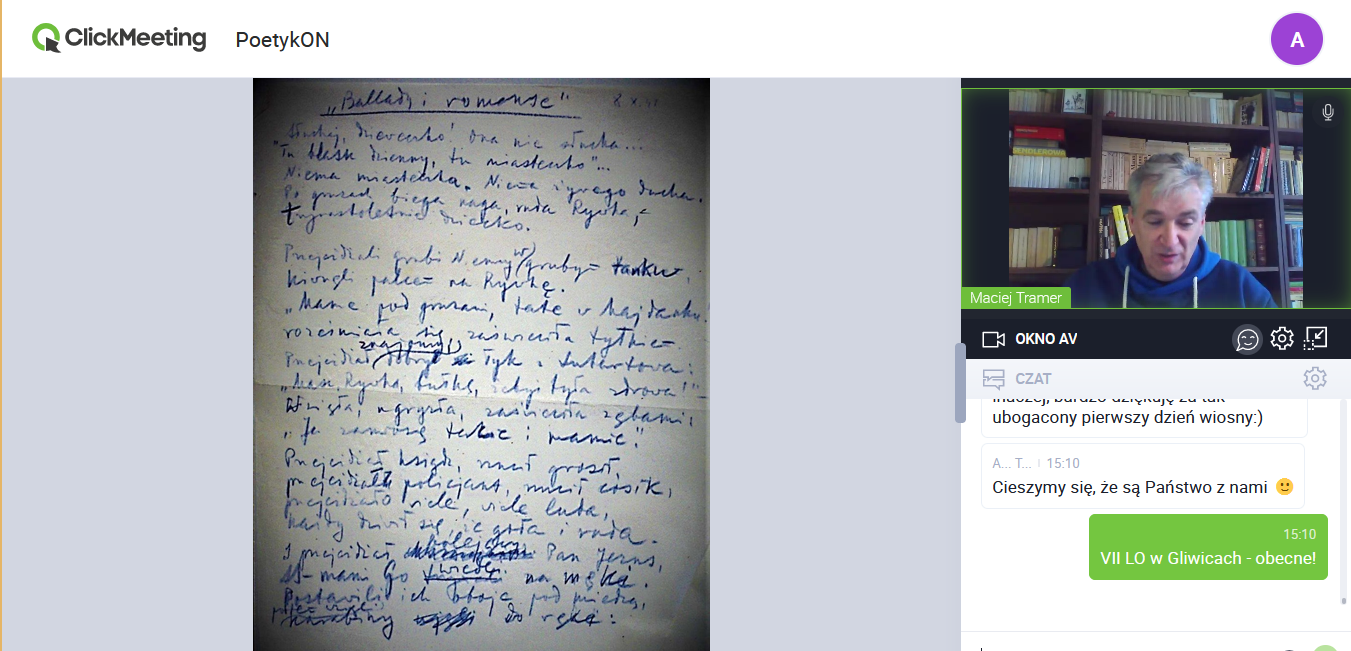 ClickMeeting
PoetykON
A
„Ballady i romanse”
8 X 41
„Słuchaj, dzieweczko! Ona nie słucha...
"Tu blask dzienny, tu miasteczko"...
Niema miasteczka. Niema żywego ducha.
Po gruzach biega naga, ruda Ryfka,
trzynastoletnie dziecko.
Przejeżdżali grubi Niemcy w grubym tanku,
na Ryfkę.
„Mame pod gruzami, tate w Majdanku"
roześmiała się, zakręciła
Przejeżdżał znajomy dobry łyk z Lubartowa:
„Masz, Ryfka, bułkę, żebyś była zdrowa!”
Wzięła, ugryzła, zaświeciła zębami:
„Ja zaniosę tacie i mamie."
Przejeżdżał ksiądz, rzucił grosz,
przejeżdżał policjant, rzucił cosik,
przejeżdżało wiele, wiele luda,
każdy dziwił się, że goła i ruda.
I przejeżdżał kolejowy Pan Jezus,
SS-mani Go wiedli na męki.
Postawili ich oboje pod miedzą,
karabiny do ręki:
Maciej Tramer
OKNO AV
CZAT
inaczej, bardzo dziękuję za tak
ubogacony pierwszy dzień wiosny:)
A... T... 15:10
Cieszymy się, że są Państwo z nami 🙂
15:10
VII LO w Gliwicach - obecne!